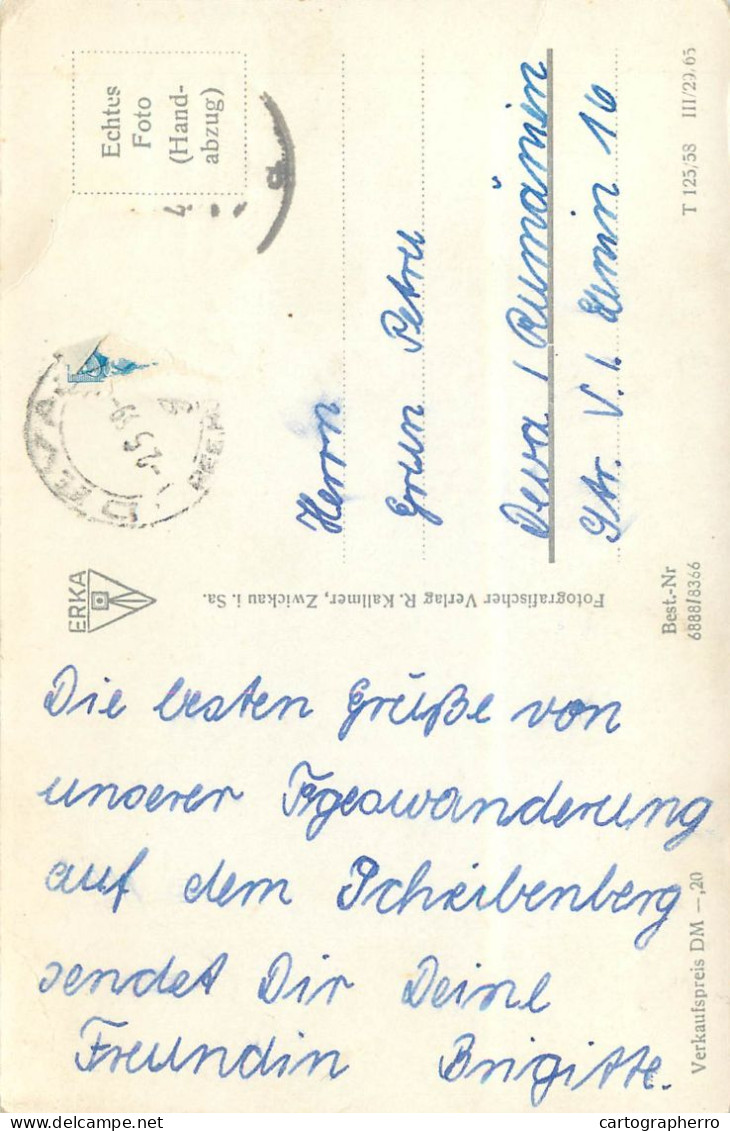 Die besten Grüße von
unserer Tageswanderung
auf dem Scheibenberg
sendet Dir Deine
Freundin Brigitte.
Echtes
Foto
(Hand-
abzug)
DEVA
Herrn
Grun Petru
Deva / Rumänien
Str. V. I. Lenin 16
ERKA
Fotografischer Verlag R. Kallmer, Zwickau i. Sa.
Best.-Nr
6888/8366
T 125/58 III/29/65
Verkaufspreis DM —,20
cartographerro